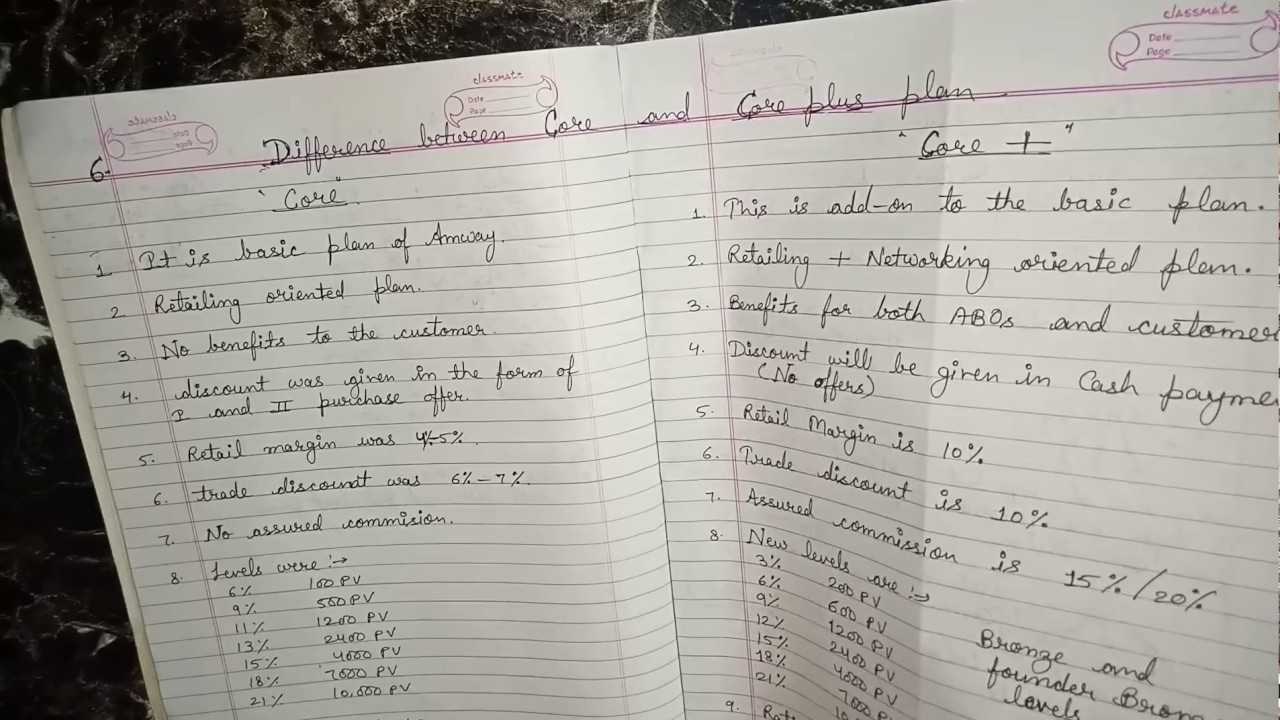 classmate
Date
Page
classmate
Date
Page
6. Difference between Core and Core plus plan
"Core"
1. It is basic plan of Amway.
2 Retailing oriented plan.
3. No benefits to the customer.
4. discount was given in the form of
I and II purchase offer.
5. Retail margin was 4%-5%.
6. trade discount was 6%-7%.
7. No assured commision.
8. Levels were :→
6% 100 PV
9% 500 PV
11% 1200 PV
13% 2400 PV
15% 4000 PV
18% 7000 PV
21% 10,000 PV
"Core +"
1. This is add-on to the basic plan.
2. Retailing + Networking oriented plan.
3. Benefits for both ABOs and customer
4. Discount will be given in Cash payme
(No offers)
5. Retail Margin is 10%
6. Trade discount is 10%
7. Assured commission is 15%/20%
8. New levels are :→
3% 200 PV
6% 600 PV
9% 1200 PV
12% 2400 PV
15% 4000 PV
18% 7000 PV
21%
Bronze and
founder Bron
levels
9.